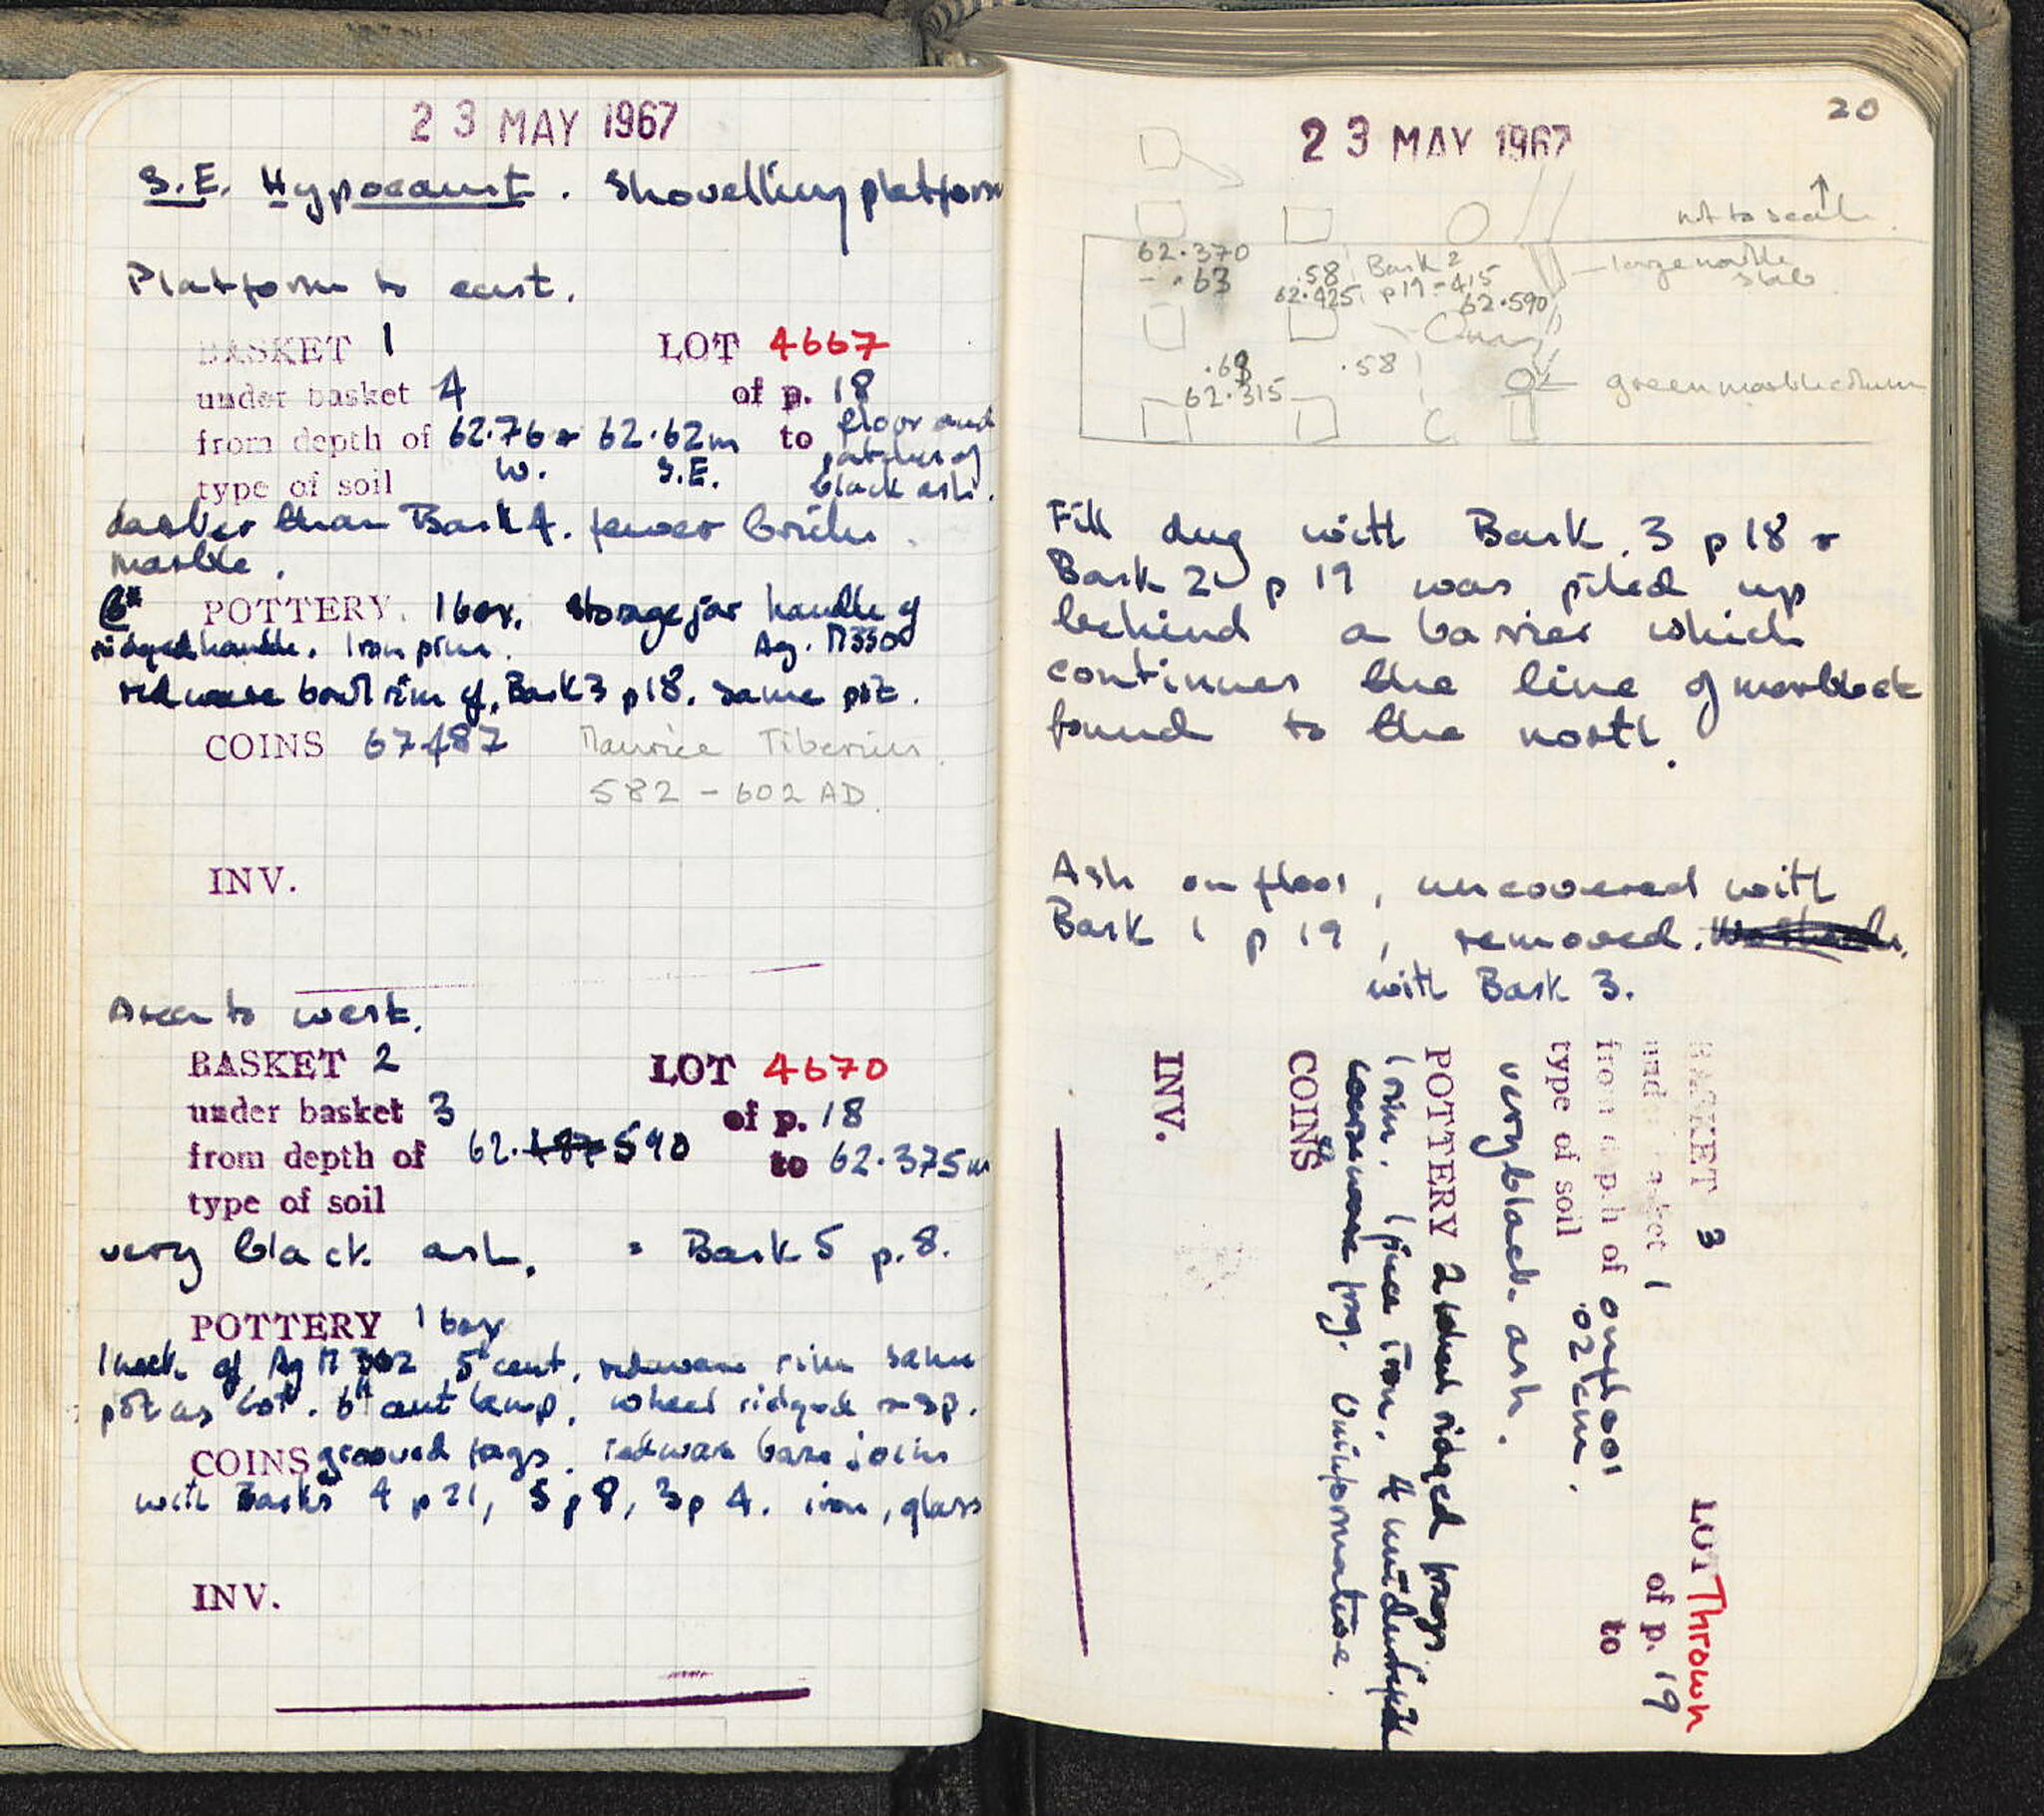 23 MAY 1967
S.E. Hypocaust. Shovelling platform
Platform to east.
BASKET 1 LOT 4667
under basket 4 of p. 18
from depth of 62.76 & 62.62m to floor and
W. S.E. patches of
type of soil black ash.
darker than Bask 4. fewer bricks
marble.
POTTERY. 1 box. storage jar handle cf
ridged handle. Iron pins. Ag. M330
red ware bowl rim cf. Bask 3 p 18. same pot.
COINS 67487 Maurice Tiberius
582 - 602 AD.
INV.
Area to west.
BASKET 2 LOT 4670
under basket 3 of p. 18
from depth of 62.487 590 to 62.375m
type of soil
very black ash. = Bask 5 p. 8.
POTTERY 1 box
1 neck cf Ag M 302 5th cent, redware rim same
pot as lot. 6th cent lamp, wheel ridged
COINS grooved frags. redware base joins
with Basks 4 p 21, 5 p 8, 3 p 4. iron, glass
INV.
20
23 MAY 1967
not to scale
62.370
-.63
.58 Bask 2
62.425 p19=415
62.590
large marble
slab
.58
62.315
green marble column
Fill dug with Bask. 3 p 18 &
Bask 2 p 19 was piled up
behind a barrier which
continues the line of marble etc
found to the north.
Ash on floor, uncovered with
Bask 1 p 19, removed.
with Bask 3.
BASKET 3 LOT Thrown
under basket 1 of p. 19
from depth of on floor to
.02 cm.
type of soil
very black ash.
POTTERY 2 wheel ridged frags
1 rim. 1 piece iron. 4 unidentifiable
coarse ware frag. Uninformative.
COINS
INV.